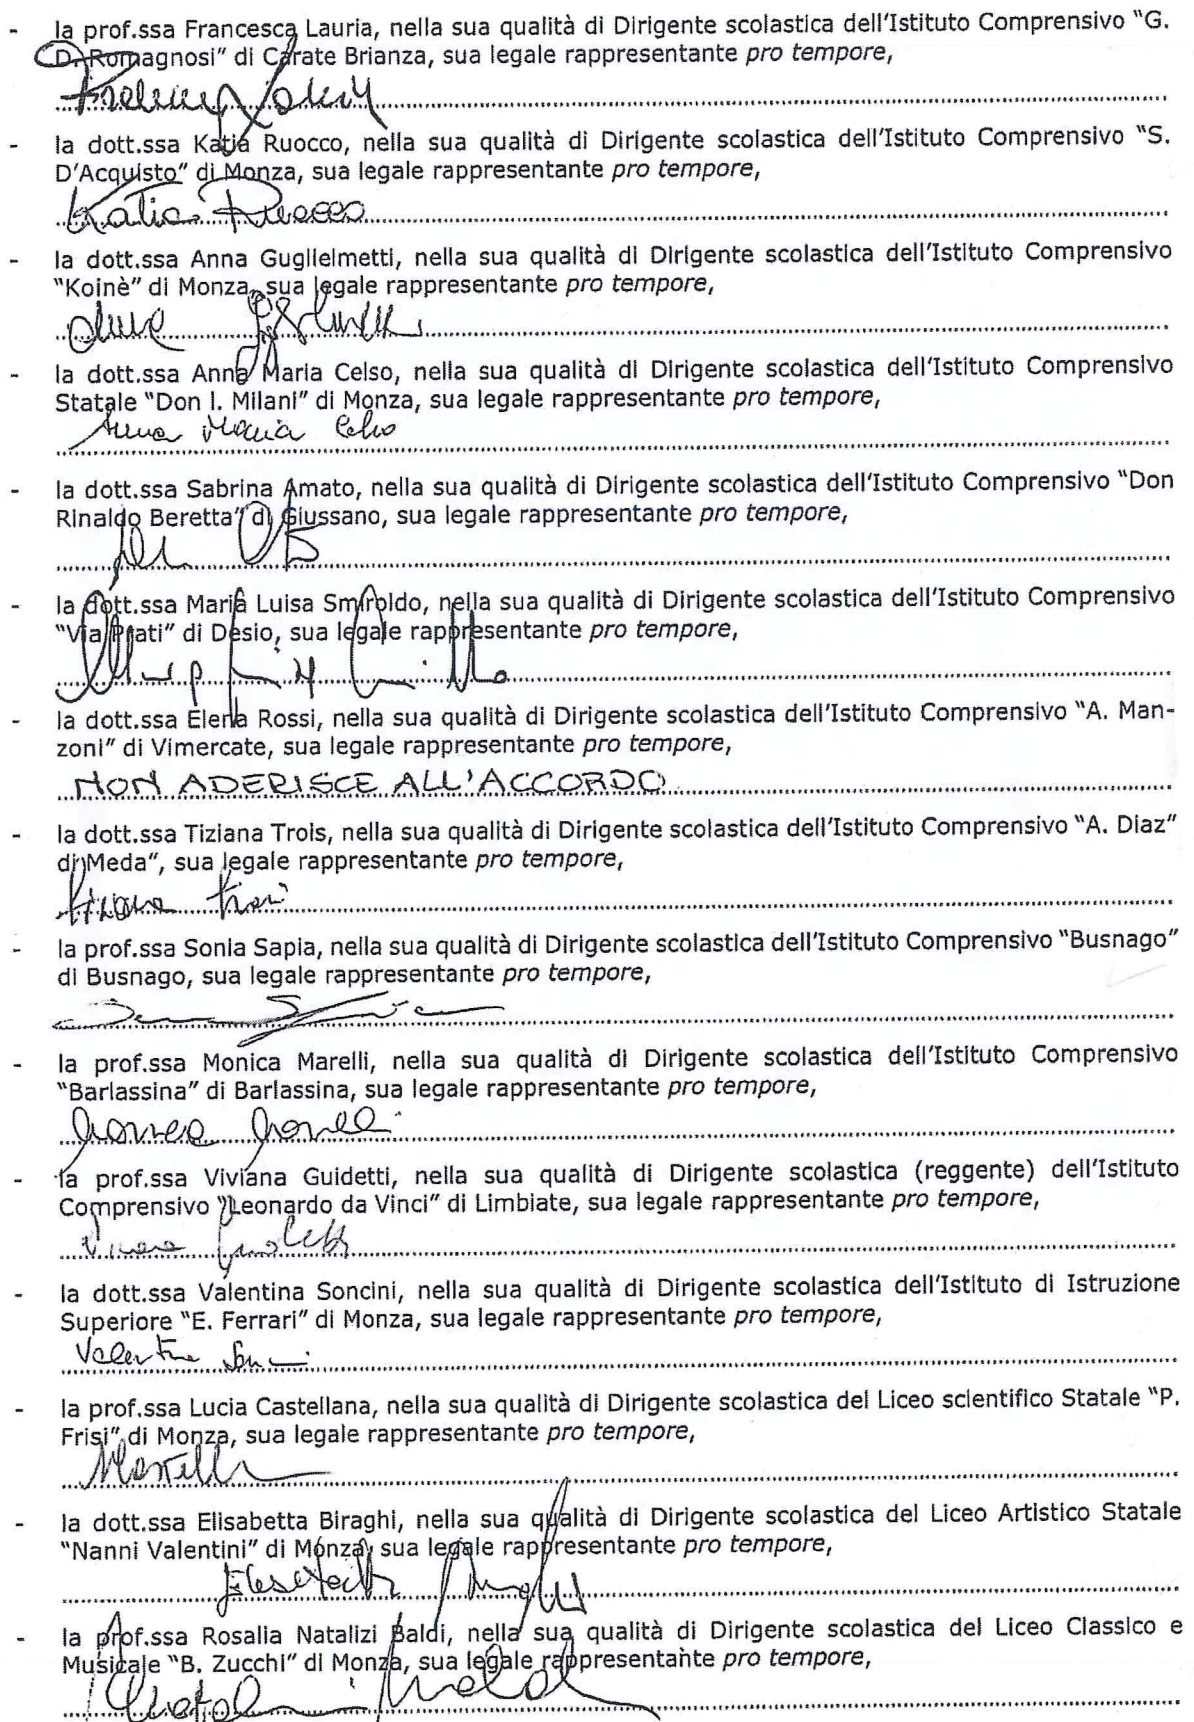 - la prof.ssa Francesca Lauria, nella sua qualità di Dirigente scolastica dell'Istituto Comprensivo "G.
D. Romagnosi" di Carate Brianza, sua legale rappresentante pro tempore,
- la dott.ssa Katja Ruocco, nella sua qualità di Dirigente scolastica dell'Istituto Comprensivo "S.
D'Acquisto" di Monza, sua legale rappresentante pro tempore,
Katia Ruocco
- la dott.ssa Anna Guglielmetti, nella sua qualità di Dirigente scolastica dell'Istituto Comprensivo
"Koinè" di Monza, sua legale rappresentante pro tempore,
- la dott.ssa Anna Maria Celso, nella sua qualità di Dirigente scolastica dell'Istituto Comprensivo
Statale "Don l. Milani" di Monza, sua legale rappresentante pro tempore,
Anna Maria Celso
- la dott.ssa Sabrina Amato, nella sua qualità di Dirigente scolastica dell'Istituto Comprensivo "Don
Rinaldo Beretta" di Giussano, sua legale rappresentante pro tempore,
- la dott.ssa Maria Luisa Smiroldo, nella sua qualità di Dirigente scolastica dell'Istituto Comprensivo
"Via Prati" di Desio, sua legale rappresentante pro tempore,
- la dott.ssa Elena Rossi, nella sua qualità di Dirigente scolastica dell'Istituto Comprensivo "A. Man-
zoni" di Vimercate, sua legale rappresentante pro tempore,
NON ADERISCE ALL'ACCORDO
- la dott.ssa Tiziana Trois, nella sua qualità di Dirigente scolastica dell'Istituto Comprensivo "A. Diaz"
di Meda", sua legale rappresentante pro tempore,
- la prof.ssa Sonia Sapia, nella sua qualità di Dirigente scolastica dell'Istituto Comprensivo "Busnago"
di Busnago, sua legale rappresentante pro tempore,
- la prof.ssa Monica Marelli, nella sua qualità di Dirigente scolastica dell'Istituto Comprensivo
"Barlassina" di Barlassina, sua legale rappresentante pro tempore,
- la prof.ssa Viviana Guidetti, nella sua qualità di Dirigente scolastica (reggente) dell'Istituto
Comprensivo "Leonardo da Vinci" di Limbiate, sua legale rappresentante pro tempore,
- la dott.ssa Valentina Soncini, nella sua qualità di Dirigente scolastica dell'Istituto di Istruzione
Superiore "E. Ferrari" di Monza, sua legale rappresentante pro tempore,
- la prof.ssa Lucia Castellana, nella sua qualità di Dirigente scolastica del Liceo scientifico Statale "P.
Frisi" di Monza, sua legale rappresentante pro tempore,
- la dott.ssa Elisabetta Biraghi, nella sua qualità di Dirigente scolastica del Liceo Artistico Statale
"Nanni Valentini" di Monza, sua legale rappresentante pro tempore,
- la prof.ssa Rosalia Natalizi Baldi, nella sua qualità di Dirigente scolastica del Liceo Classico e
Musicale "B. Zucchi" di Monza, sua legale rappresentante pro tempore,